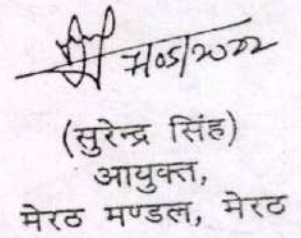 7/05/2022
(सुरेन्द्र सिंह)
आयुक्त,
मेरठ मण्डल, मेरठ